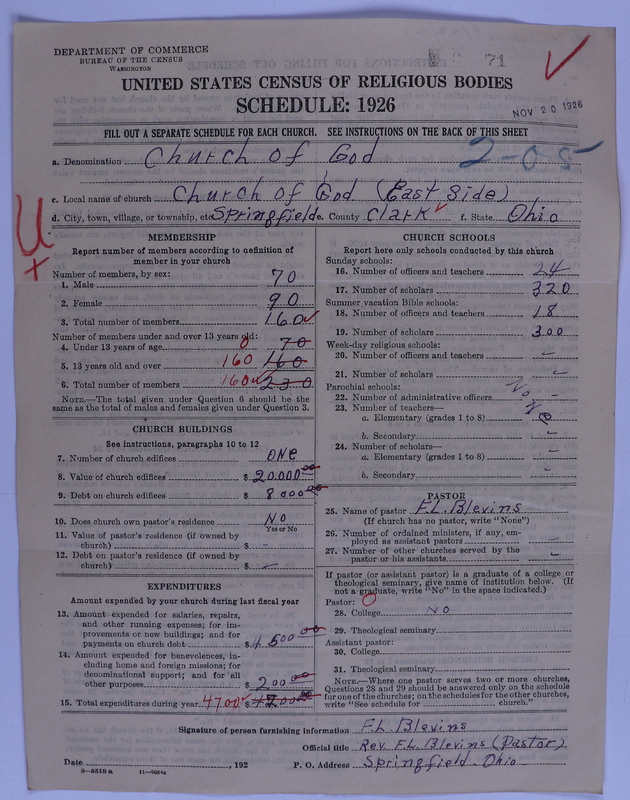 DEPARTMENT OF COMMERCE
BUREAU OF THE CENSUS
WASHINGTON
71
UNITED STATES CENSUS OF RELIGIOUS BODIES
SCHEDULE: 1926
NOV 20 1926
FILL OUT A SEPARATE SCHEDULE FOR EACH CHURCH. SEE INSTRUCTIONS ON THE BACK OF THIS SHEET
a. Denomination Church of God
2-05
c. Local name of church Church of God (East Side)
d. City, town, village, or township, etc Springfield e. County Clark f. State Ohio
MEMBERSHIP
Report number of members according to definition of
member in your church
Number of members, by sex:
1. Male 70
2. Female 90
3. Total number of members 160
Number of members under and over 13 years old:
4. Under 13 years of age 0 70
5. 13 years old and over 160 160
6. Total number of members 160 230
NOTE.—The total given under Question 6 should be
same as the total of males and females given under Question 3.
CHURCH BUILDINGS
See instructions, paragraphs 10 to 12
7. Number of church edifices one
8. Value of church edifices $ 20000.00
9. Debt on church edifices $ 8000.00
10. Does church own pastor's residence No
Yes or No
11. Value of pastor's residence (if owned by
church) $ -
12. Debt on pastor's residence (if owned by
church) $ -
EXPENDITURES
Amount expended by your church during last fiscal year
13. Amount expended for salaries, repairs,
and other running expenses; for im-
provements or new buildings; and for
payments on church debt $ 4500.00
14. Amount expended for benevolences, in-
cluding home and foreign missions; for
denominational support; and for all
other purposes $ 200.00
15. Total expenditures during year 4700 $ 4700.00
CHURCH SCHOOLS
Report here only schools conducted by this church
Sunday schools:
16. Number of officers and teachers 24
17. Number of scholars 320
Summer vacation Bible schools:
18. Number of officers and teachers 18
19. Number of scholars 300
Week-day religious schools:
20. Number of officers and teachers -
21. Number of scholars -
Parochial schools:
22. Number of administrative officers No -
23. Number of teachers—
a. Elementary (grades 1 to 8)
b. Secondary -
24. Number of scholars—
a. Elementary (grades 1 to 8) -
b. Secondary -
PASTOR
25. Name of pastor F.L. Blevins
(If church has no pastor, write "None")
26. Number of ordained ministers, if any, em-
ployed as assistant pastors -
27. Number of other churches served by the
pastor or his assistants -
If pastor (or assistant pastor) is a graduate of a college or
theological seminary, give name of institution below. (If
not a graduate, write "No" in the space indicated.)
Pastor:
28. College No
29. Theological seminary
Assistant pastor:
30. College
31. Theological seminary
NOTE.—Where one pastor serves two or more churches,
Questions 28 and 29 should be answered only on the schedule
for one of the churches; on the schedules for the other churches,
write "See schedule for church."
Signature of person furnishing information F.L. Blevins
Official title Rev. F.L. Blevins (Pastor)
Date , 192 P. O. Address Springfield Ohio
8—5518a 11—9054a